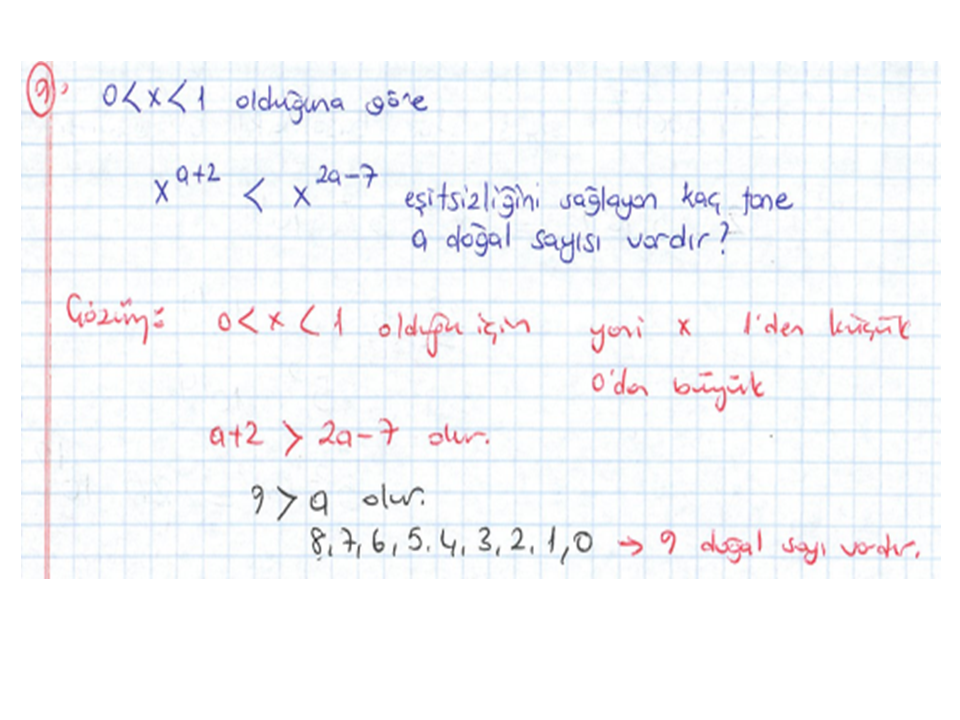 9) 0<x<1 olduğuna göre
x^(a+2) < x^(2a-7) eşitsizliğini sağlayan kaç tane
a doğal sayısı vardır?
Çözüm: 0<x<1 olduğu için yani x 1'den küçük
0'dan büyük
a+2 > 2a-7 olur.
9>a olur.
8,7,6,5,4,3,2,1,0 → 9 doğal sayı vardır.